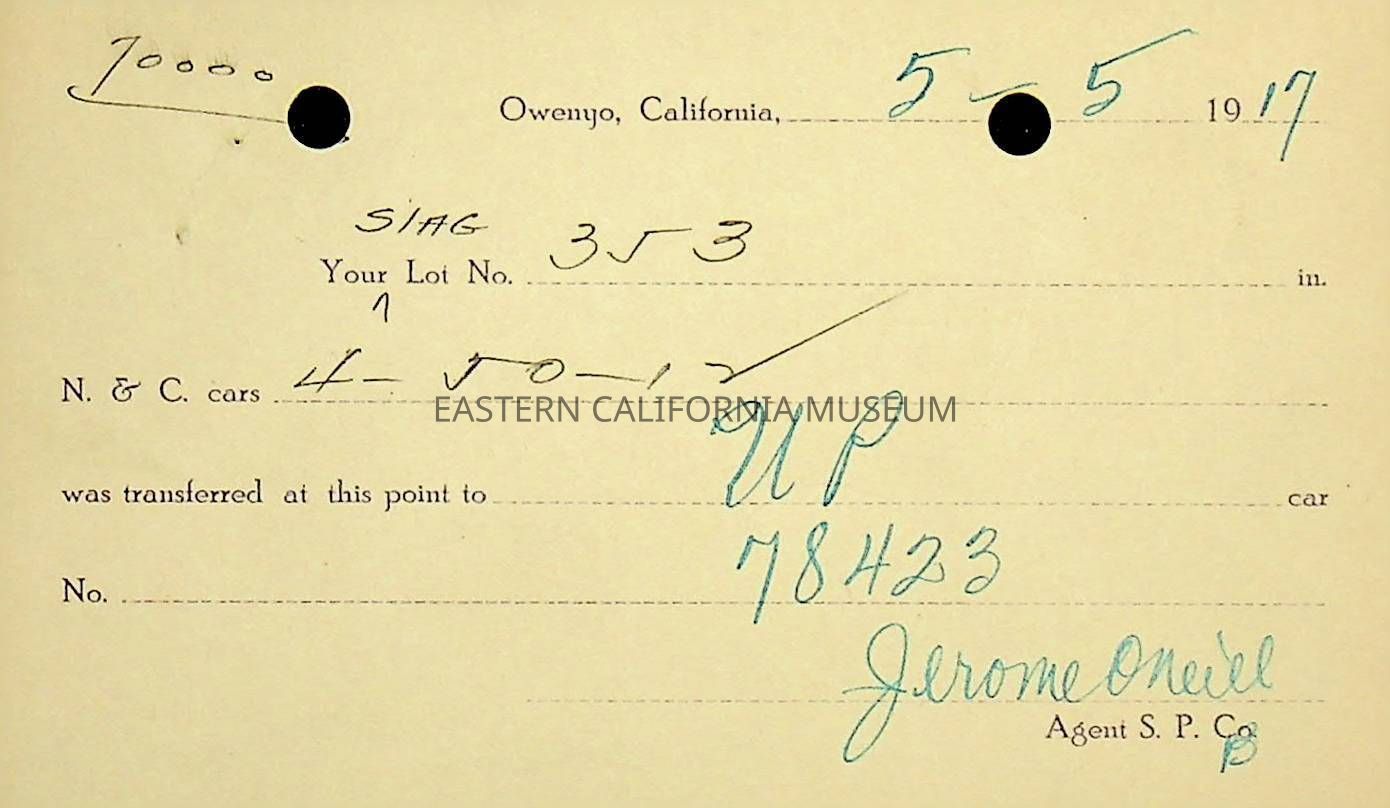 70000
Owenyo, California, 5 - 5 1917
SlAG
Your Lot No. 353 in.
^
N. & C. cars 4 - 50 - 12
EASTERN CALIFORNIA MUSEUM
was transferred at this point to UP car
No. 78423
Jerome Oneill
Agent S. P. Co.
B